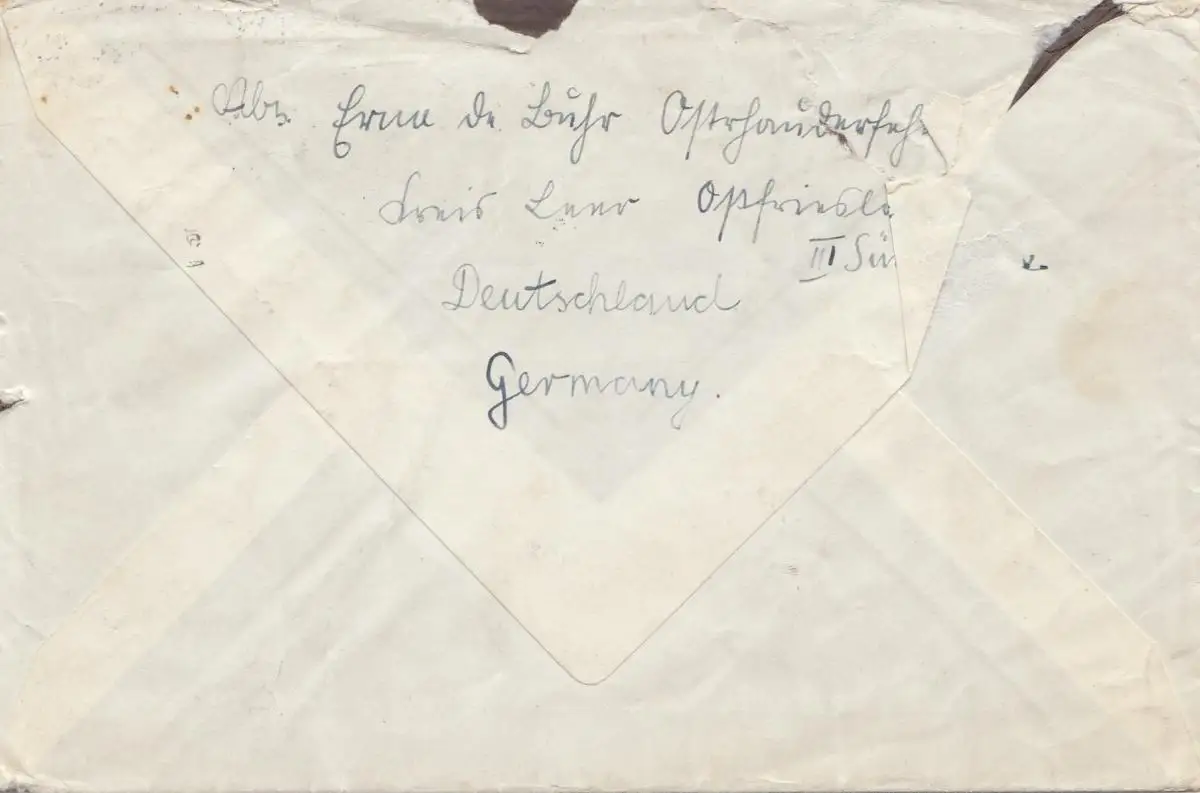 Abs. Erna de Buhr Ostrhauderfeh
Kreis Leer Ostfriesla
III Sü
Deutschland
Germany.